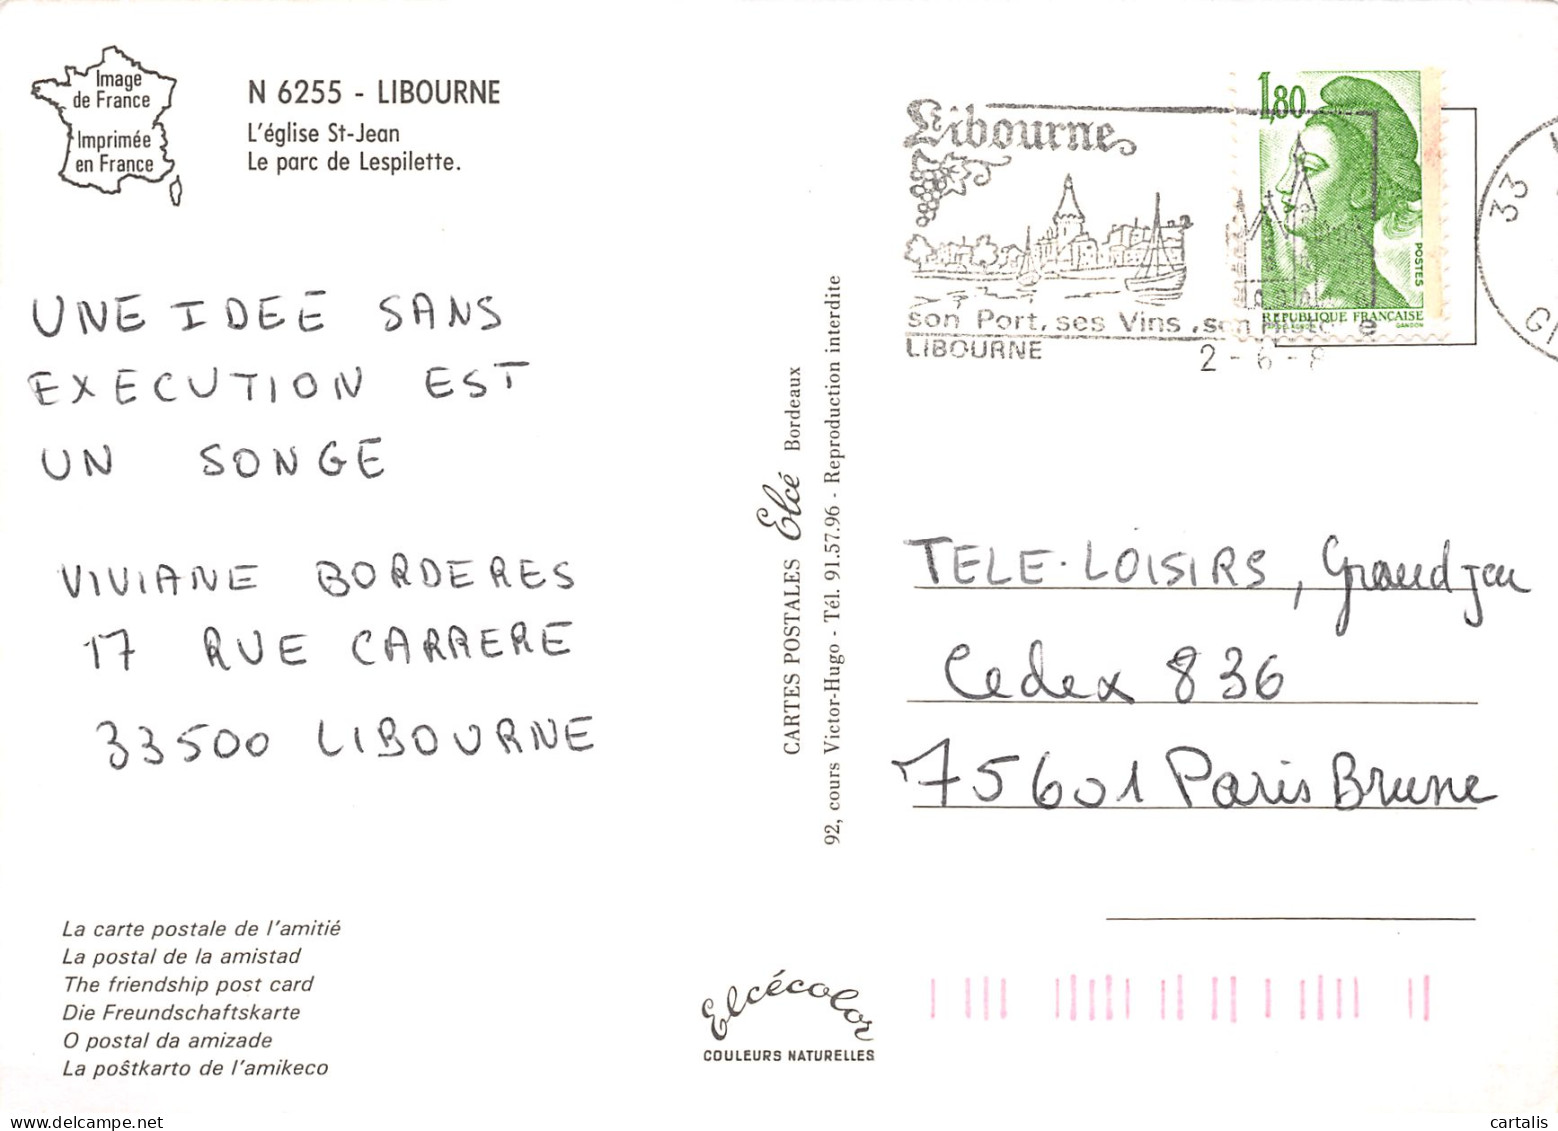 Image
de France
Imprimée
en France
N 6255 - LIBOURNE
L'église St-Jean
Le parc de Lespilette.
UNE IDEE SANS
EXECUTION EST
UN SONGE
VIVIANE BORDERES
17 RUE CARRERE
33500 LIBOURNE
La carte postale de l'amitié
La postal de la amistad
The friendship post card
Die Freundschaftskarte
O postal da amizade
La poŝtkarto de l'amikeco
CARTES POSTALES Elcé Bordeaux
92, cours Victor-Hugo - Tél. 91.57.96 - Reproduction interdite
Elcécolor
COULEURS NATURELLES
Libourne
son Port, ses Vins, son Histoire
LIBOURNE 2-6-8
1,80
POSTES
REPUBLIQUE FRANÇAISE
GANDON
33
GI
TELE-LOISIRS, Grand jeu
Cedex 836
75601 Paris Brune
cartalis